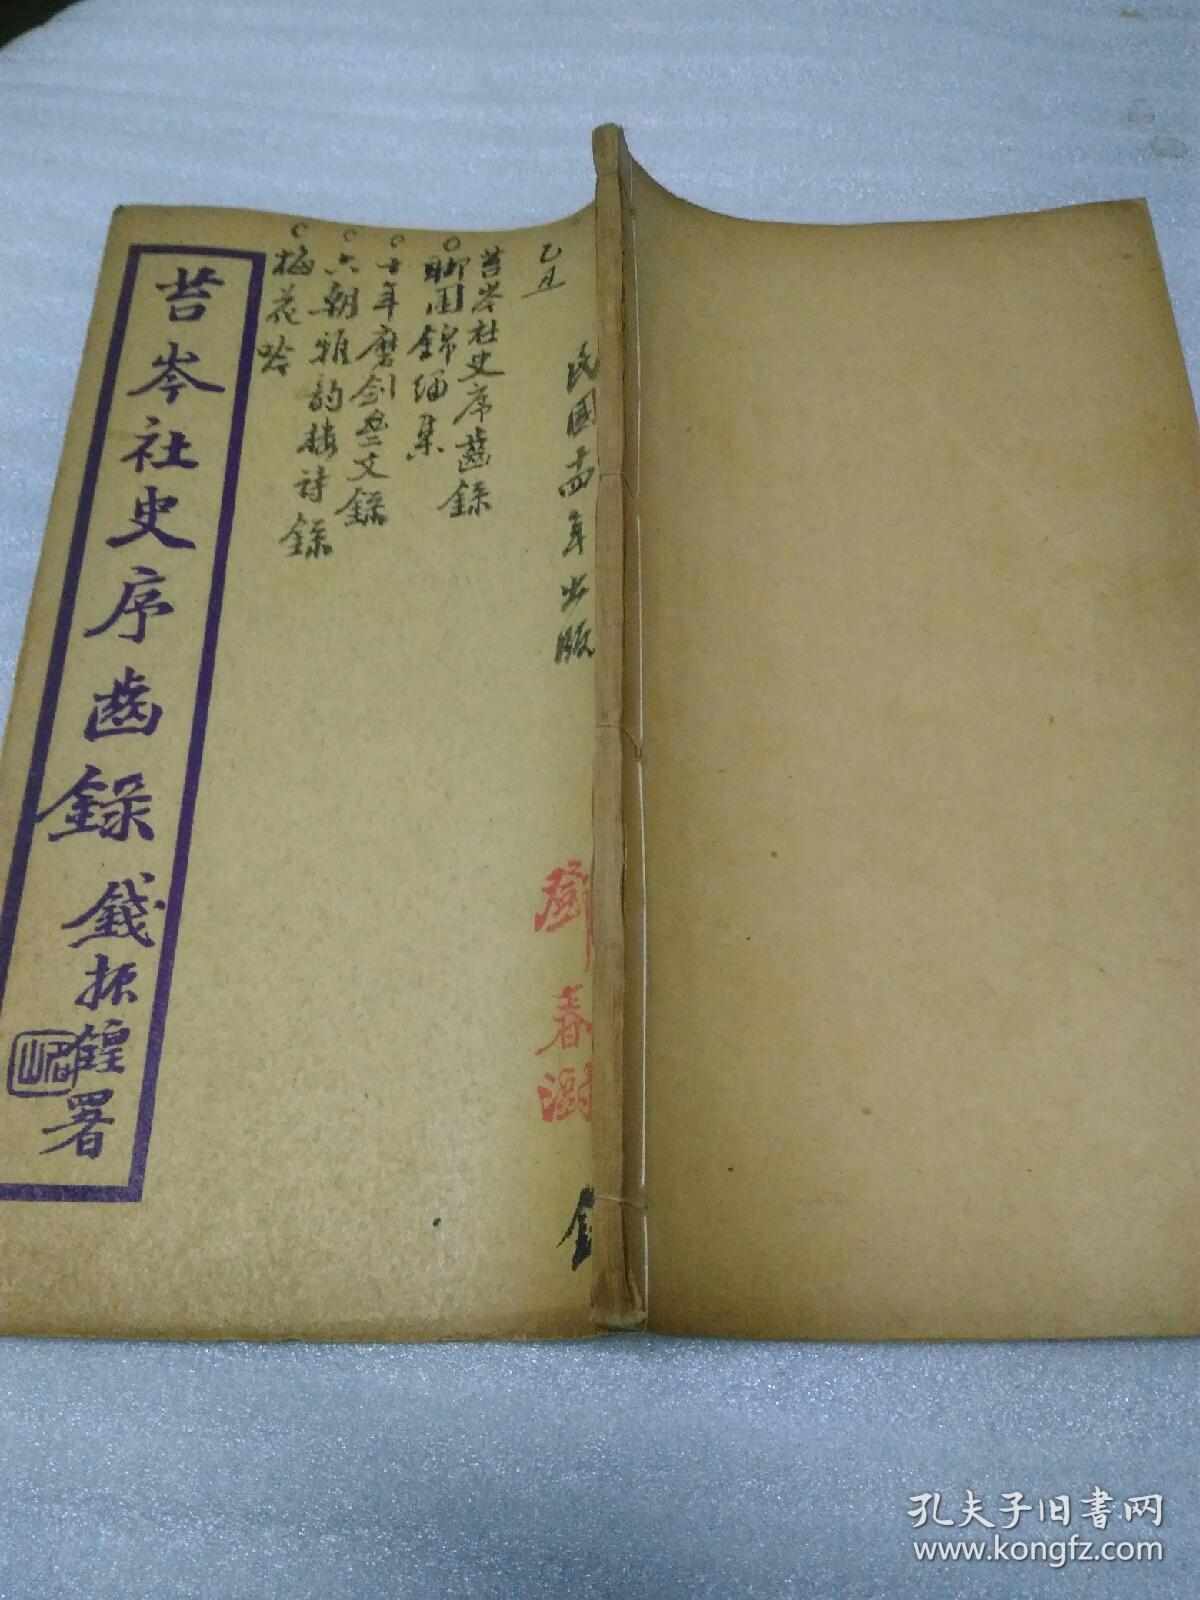 乙丑
民國十四年出版
鄧春澍
苔岑社史序齒錄
聊園錦緟集
十年磨劍
文錄
六朝雅韵樓詩錄
梅花吟
苔岑社史序齒錄
錢振鍠署
孔夫子旧書网
www.kongfz.com